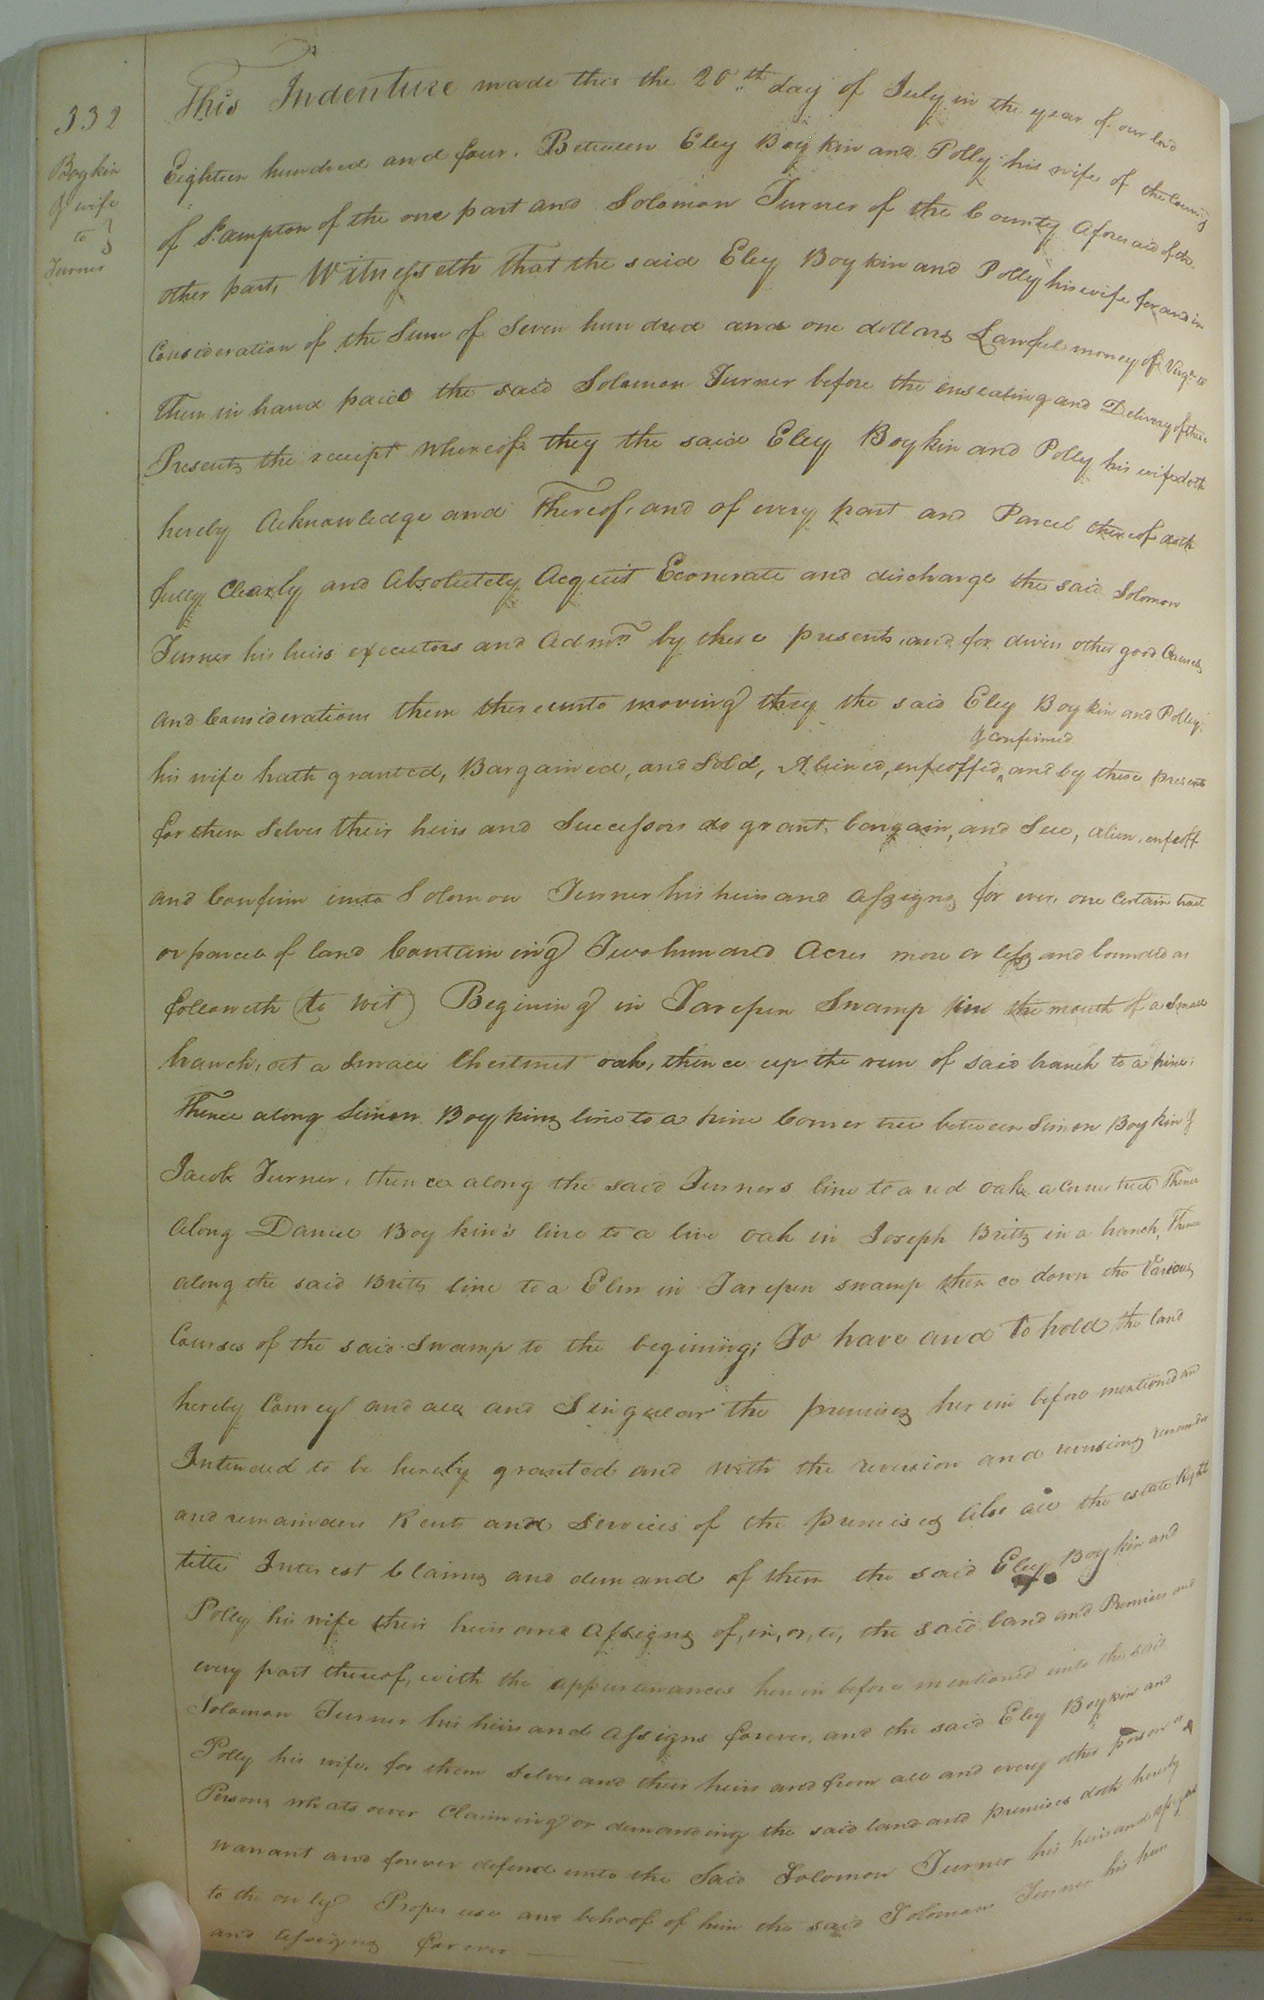 332
Boykin
& wife
to }
Turner
This Indenture made this the 20th day of July in the year of our lord
Eighteen hundred and four. Between Eley Boykin and Polly his wife of the County
of S.ampton of the one part and Solomon Turner of the County aforesaid of the
other part, Witnesseth that the said Eley Boykin and Polly his wife for and in
Consideration of the Sum of Seven hundred and one dollars Lawful money of Virga. to
them in hand paid the said Solomon Turner before the ensealing and Delivery of these
Presents the receipt whereof they the said Eley Boykin and Polly his wife doth
hereby Acknowledge and thereof, and of every part and Parcel thereof doth
fully Clearly and Absolutely Acquit Econerate and discharge the said Solomon
Turner his heirs executors and Admrs. by these presents, and for divers other good Causes
and Considerations them thereunto moving they the said Eley Boykin and Polly
his wife hath granted, Bargained, and Sold, Aliened, enfeoffed, & confirmed and by these presents
for them Selves their heirs and Successors do grant, bargain, and Sell, alien, enfeoff
and Confirm unto Solomon Turner his heirs and assigns for ever one certain tract
or parcel of land Containing Two hundred Acres more or less and bounded as
followeth (to wit) Begining in Tarepen Swamp in the mouth of a Small
branch, at a Small Chestnut oak, thence up the run of said branch to a pine;
Thence along Simon Boykins line to a pine Corner tree between Simon Boykin &
Jacob Turner, thence along the said Turners line to a red oak a corner tree Thence
along Daniel Boykin's line to a live oak in Joseph Britts in a branch, Thence
along the said Britts line to a Elm in Tarepen swamp thence down the Various
Courses of the said Swamp to the begining; To have and to hold the land
hereby Convey and all and Singular the premises herein before mentioned and
Intended to be hereby granted and with the reversion and reversions remainder
and remainders Rents and Services of the premises also all the estate Right
title Interest Claims and demand of them the said Eley Boykin and
Polly his wife their heirs and Assigns of, in, or, to, the said land and Premises and
every part thereof, with the appurtenances herein before mentioned unto the said
Solomon Turner his heirs and Assigns forever, and the said Eley Boykin and
Polly his wife, for them selves and their heirs and from all and every other person or
Persons whatsoever Claiming or demanding the said land and premises doth hereby
warrant and forever defend unto the Said Solomon Turner his heirs and assigns
to the only Proper use and behoof of him the said Solomon Turner his heirs
and assigns for ever